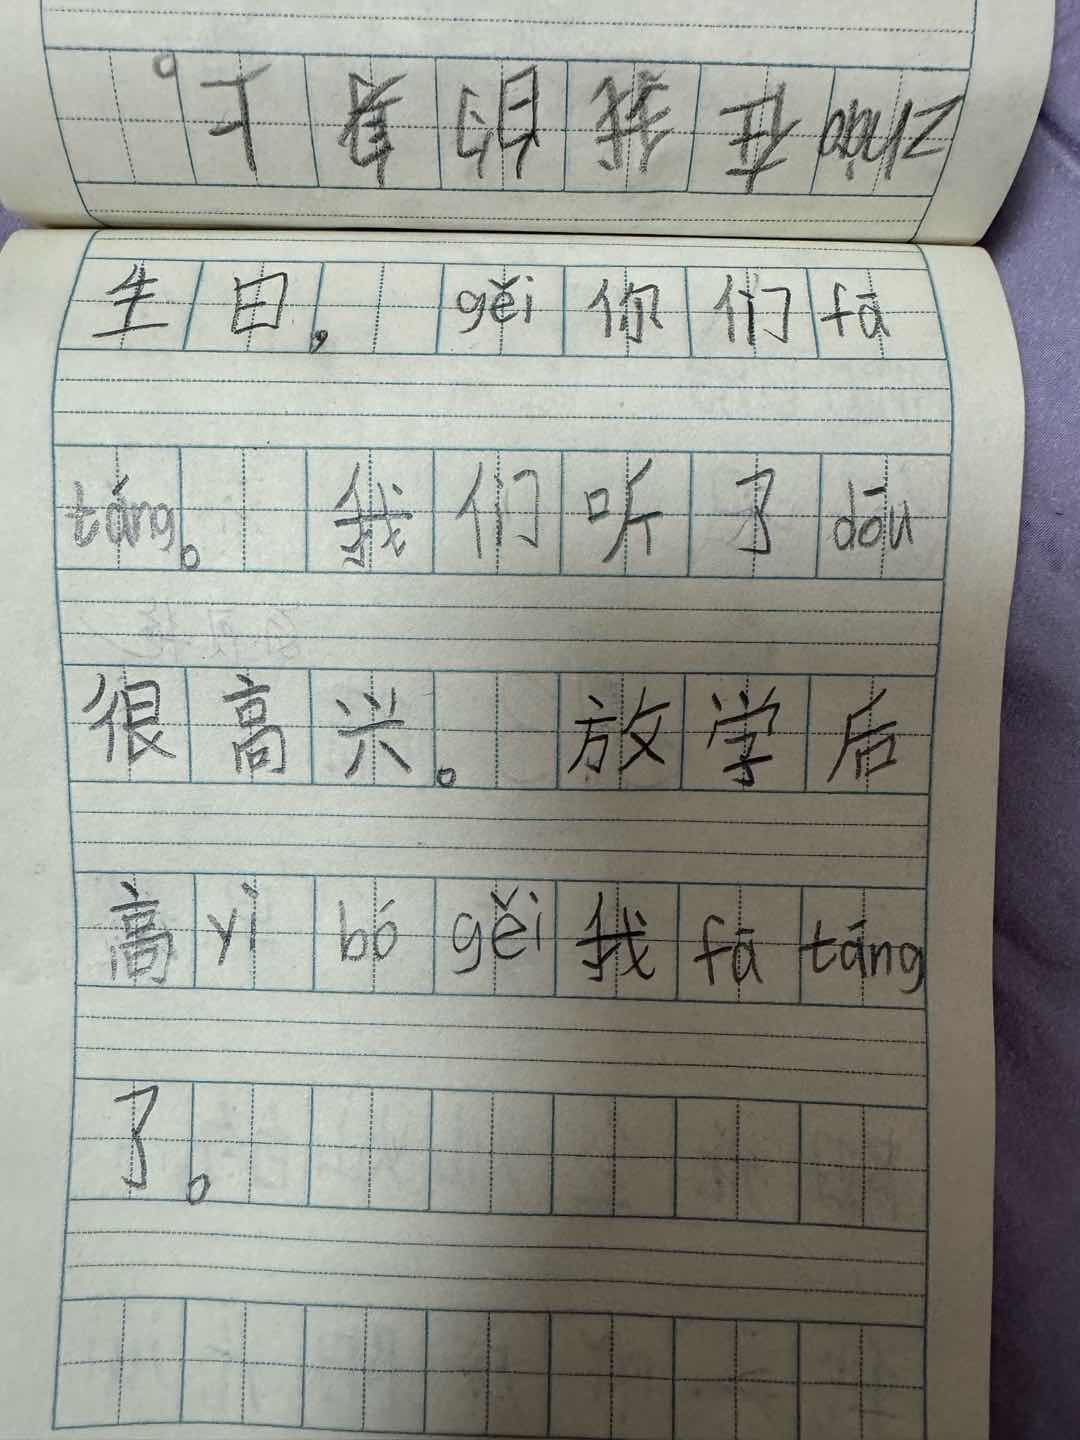 生日，gěi你们fā
táng。我们听了dōu
很高兴。放学后
高yì bó gěi我fā táng
了。